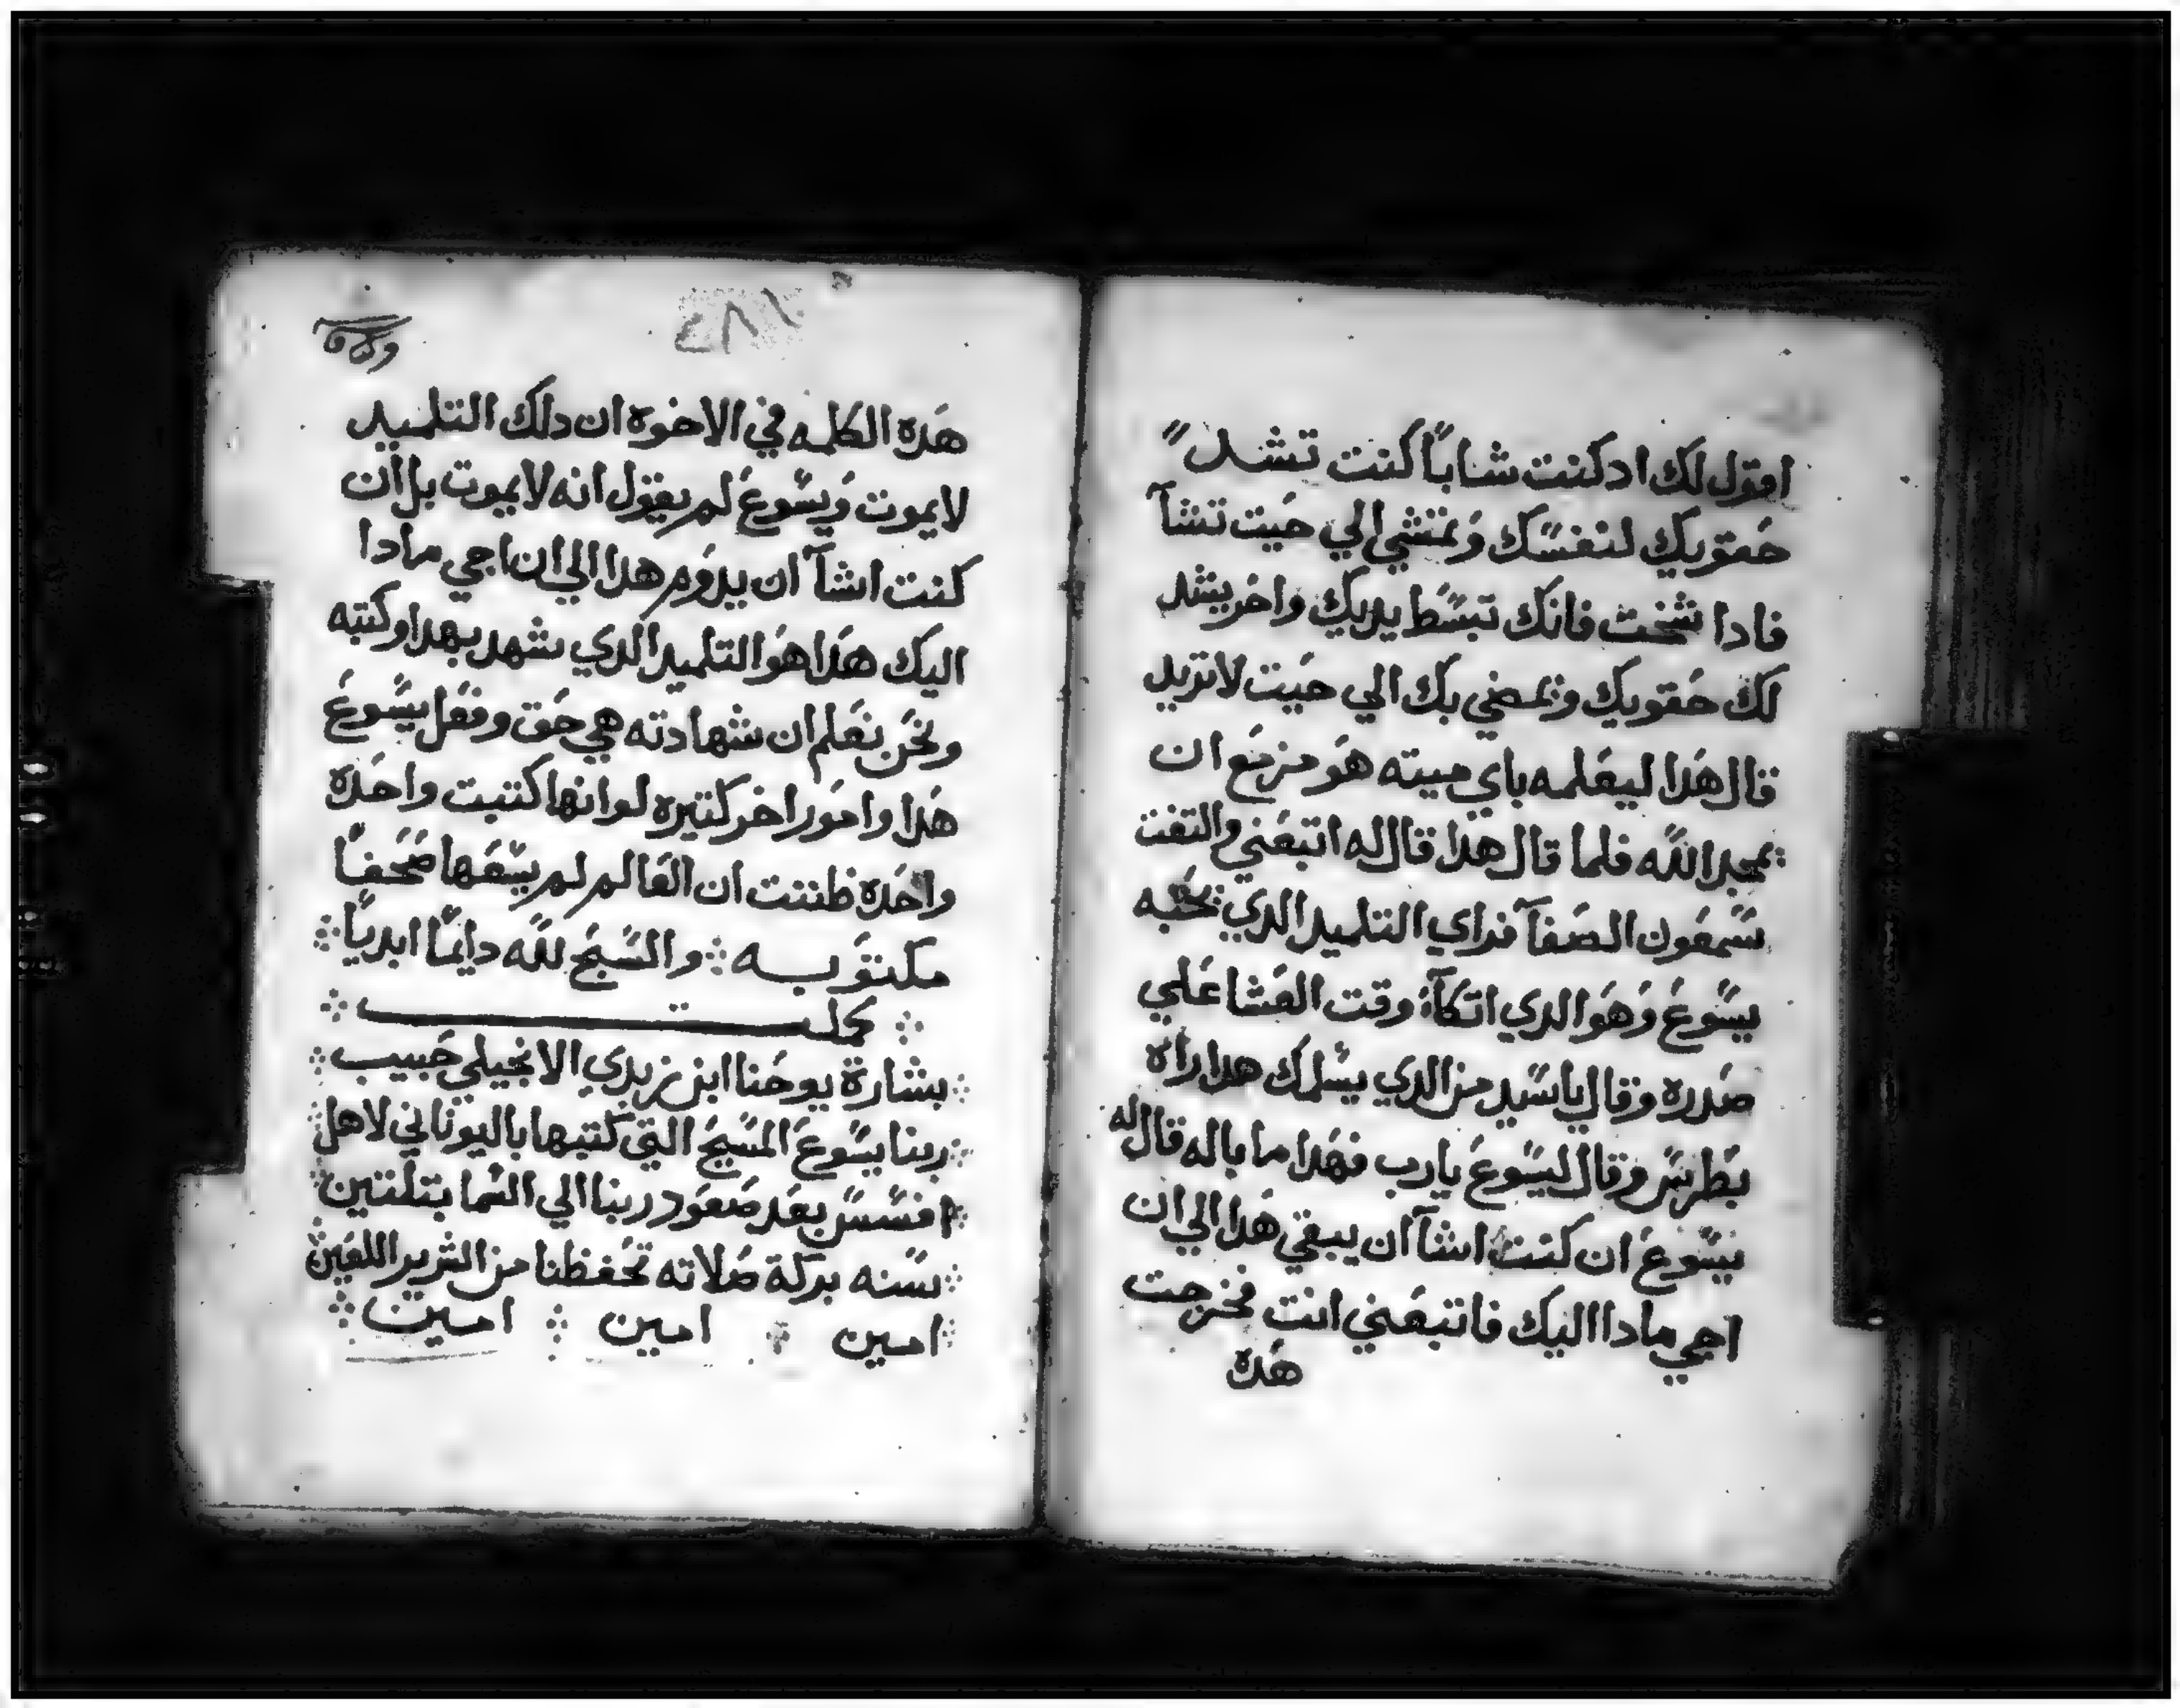 اقول لك اد كنت شاباً كنت تشد
حقويك لنفسك وتمشي الي حيت تشآ
فادا شخت فانك تبسط يديك واخر يشد
لك حقويك ويمضي بك الي حيت لاتريد
قال هدا ليعلمه باي ميته هو مزمع ان
يمجد الله فلما قال هدا قال له اتبعني والتفت
سمعون الصفآ فراي التلميد الدي يحبه
يسوع وهو الدي اتكآ وقت العشا علي
صدره وقال ياسيد من الدي يسلمك هدا راه
بطرس وقال ليسوع يارب فهدا ما باله قال له
يسوع ان كنت اشآ ان يبقي هدا الي ان
اجي مادا اليك فاتبعني انت فخرجت
هده
٢٨١
هده الكلمه في الاخوه ان دلك التلميد
لايموت ويسوع لم يقول انه لايموت بل ان
كنت اشآ ان يدوم هدا الي ان اجي مادا
اليك هدا هو التلميد الدي شهد بهدا وكتبه
ونحن نعلم ان شهادته هي حق وفعل يسوع
هدا وامور اخر كتيره لو انها كتبت واحده
واحده ظننت ان العالم لم يسعها صحفاً
مكتوبه والسبح لله دايماً ابدياً
كملت
بشارة يوحنا ابن زبدي الانجيلي حبيب
ربنا يسوع المسيح التي كتبها باليوناني لاهل
افسس بعد صعود ربنا الي السما بتلتين
سنه بركة صلاته تحفظنا من الشرير اللعين
امين امين امين